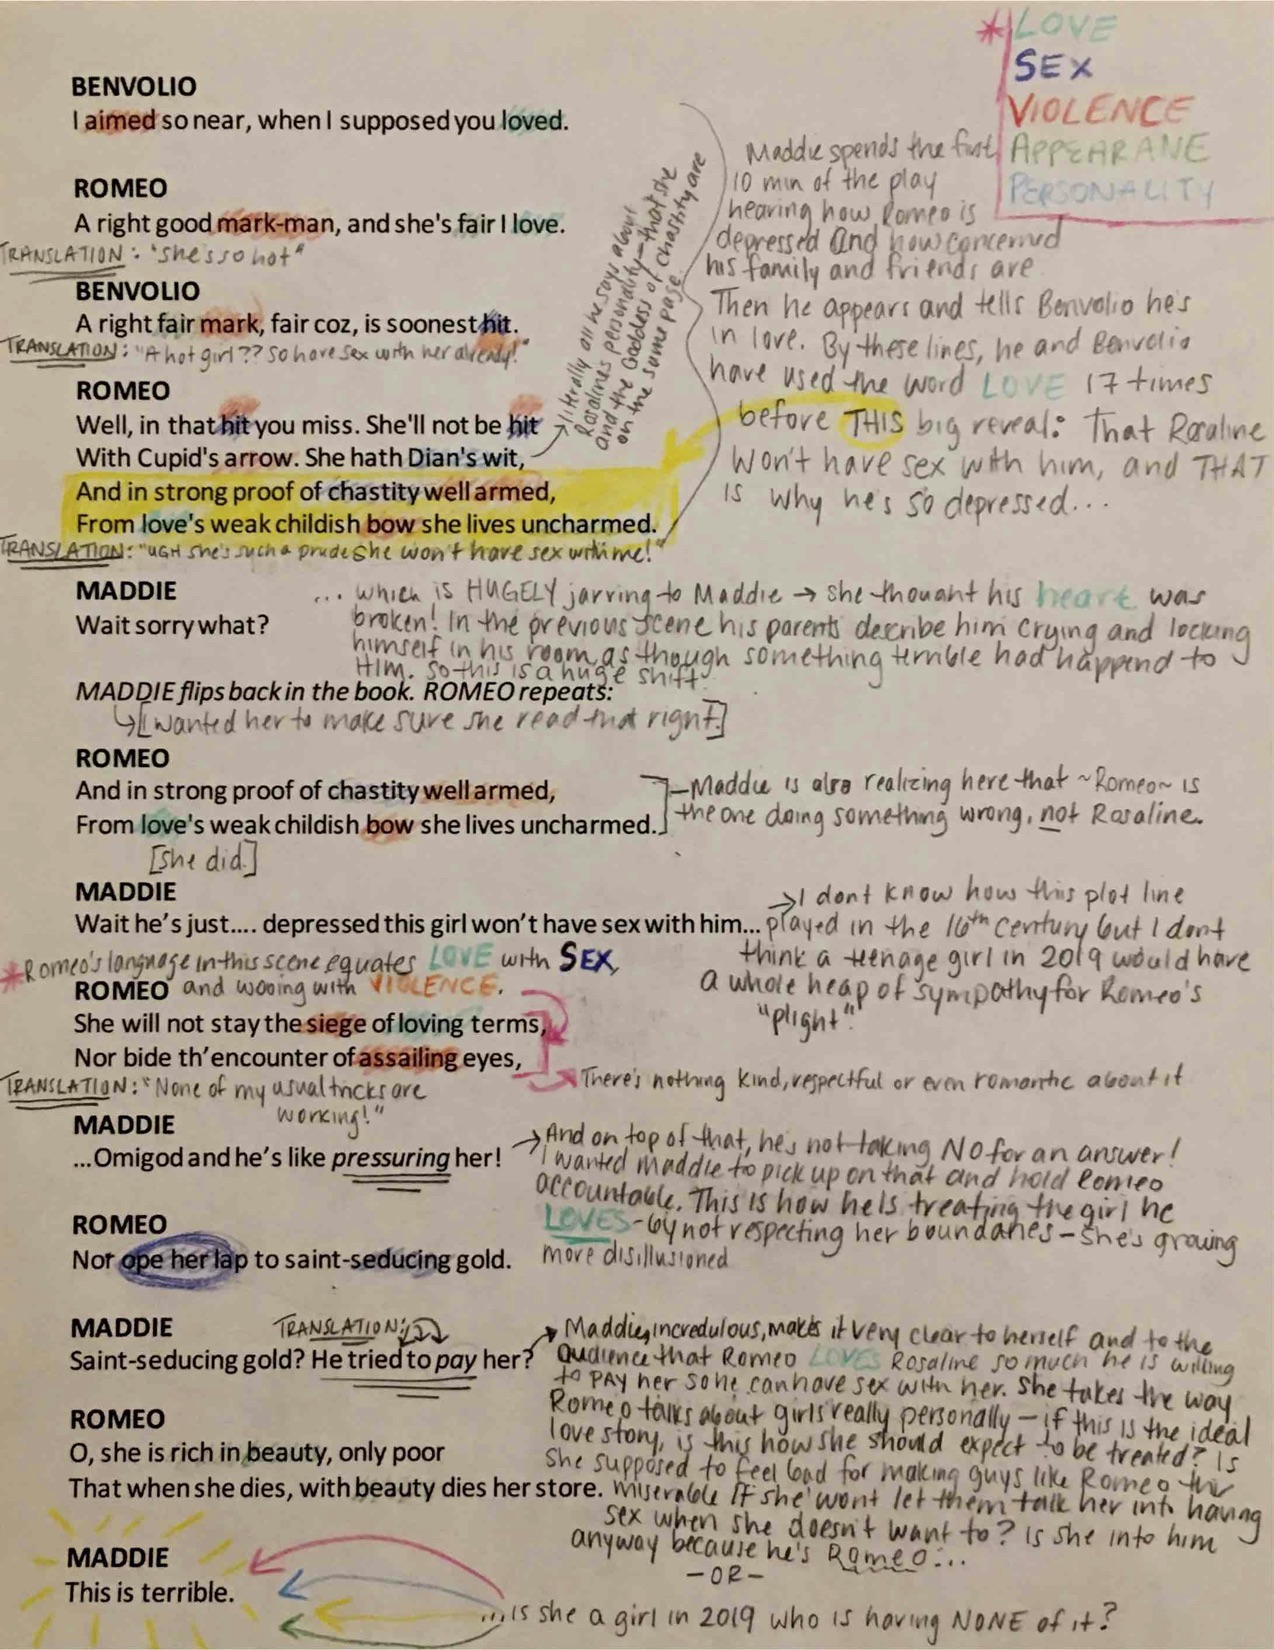 *LOVE
SEX
VIOLENCE
APPEARANE
PERSONALITY
BENVOLIO
I aimed so near, when I supposed you loved.
ROMEO
A right good mark-man, and she's fair I love.
TRANSLATION: "she's so hot"
BENVOLIO
A right fair mark, fair coz, is soonest hit.
TRANSLATION: "A hot girl?? So have sex with her already!"
ROMEO
Well, in that hit you miss. She'll not be hit
With Cupid's arrow. She hath Dian's wit,
And in strong proof of chastity well armed,
From love's weak childish bow she lives uncharmed.
TRANSLATION: "UGH she's such a prude she won't have sex with me!"
literally all he says about
Rosaline's personality - that she
and the Goddess of chastity are
on the same page
Maddie spends the first
10 min of the play
hearing how Romeo is
depressed and how concerned
his family and friends are
Then he appears and tells Benvolio he's
in love. By these lines, he and Benvolio
have used the word LOVE 17 times
before THIS big reveal: That Rosaline
won't have sex with him, and THAT
is why he's so depressed...
MADDIE
Wait sorry what?
... which is HUGELY jarring to Maddie → she thought his heart was
broken! In the previous scene his parents describe him crying and locking
himself in his room as though something terrible had happend to
HIM. So this is a huge shift.
MADDIE flips back in the book. ROMEO repeats:
↳[wanted her to make sure she read that right.]
ROMEO
And in strong proof of chastity well armed,
From love's weak childish bow she lives uncharmed.
[she did.]
Maddie is also realizing here that ~Romeo~ is
the one doing something wrong, not Rosaline.
MADDIE
Wait he's just.... depressed this girl won't have sex with him...
→I dont know how this plot line
played in the 16th century but I dont
think a teenage girl in 2019 would have
a whole heap of sympathy for Romeo's
"plight".
*Romeo's language in this scene equates LOVE with SEX,
and wooing with VIOLENCE.
ROMEO
She will not stay the siege of loving terms,
Nor bide th'encounter of assailing eyes,
→There's nothing kind, respectful or even romantic about it
TRANSLATION: "None of my usual tricks are
working!"
MADDIE
...Omigod and he's like pressuring her!
→And on top of that, he's not taking NO for an answer!
I wanted Maddie to pick up on that and hold Romeo
accountable. This is how he is treating the girl he
LOVES - by not respecting her boundaries - she's growing
more disillusioned
ROMEO
Nor ope her lap to saint-seducing gold.
MADDIE
TRANSLATION:
Saint-seducing gold? He tried to pay her?
→Maddie, incredulous, makes it very clear to herself and to the
audience that Romeo LOVES Rosaline so much he is willing
to PAY her so he can have sex with her. She takes the way
Romeo talks about girls really personally - if this is the ideal
love story, is this how she should expect to be treated? Is
she supposed to feel bad for making guys like Romeo this
miserable IF she won't let them talk her into having
sex when she doesn't want to? Is she into him
anyway because he's Romeo...
-OR-
...is she a girl in 2019 who is having NONE of it?
ROMEO
O, she is rich in beauty, only poor
That when she dies, with beauty dies her store.
MADDIE
This is terrible.